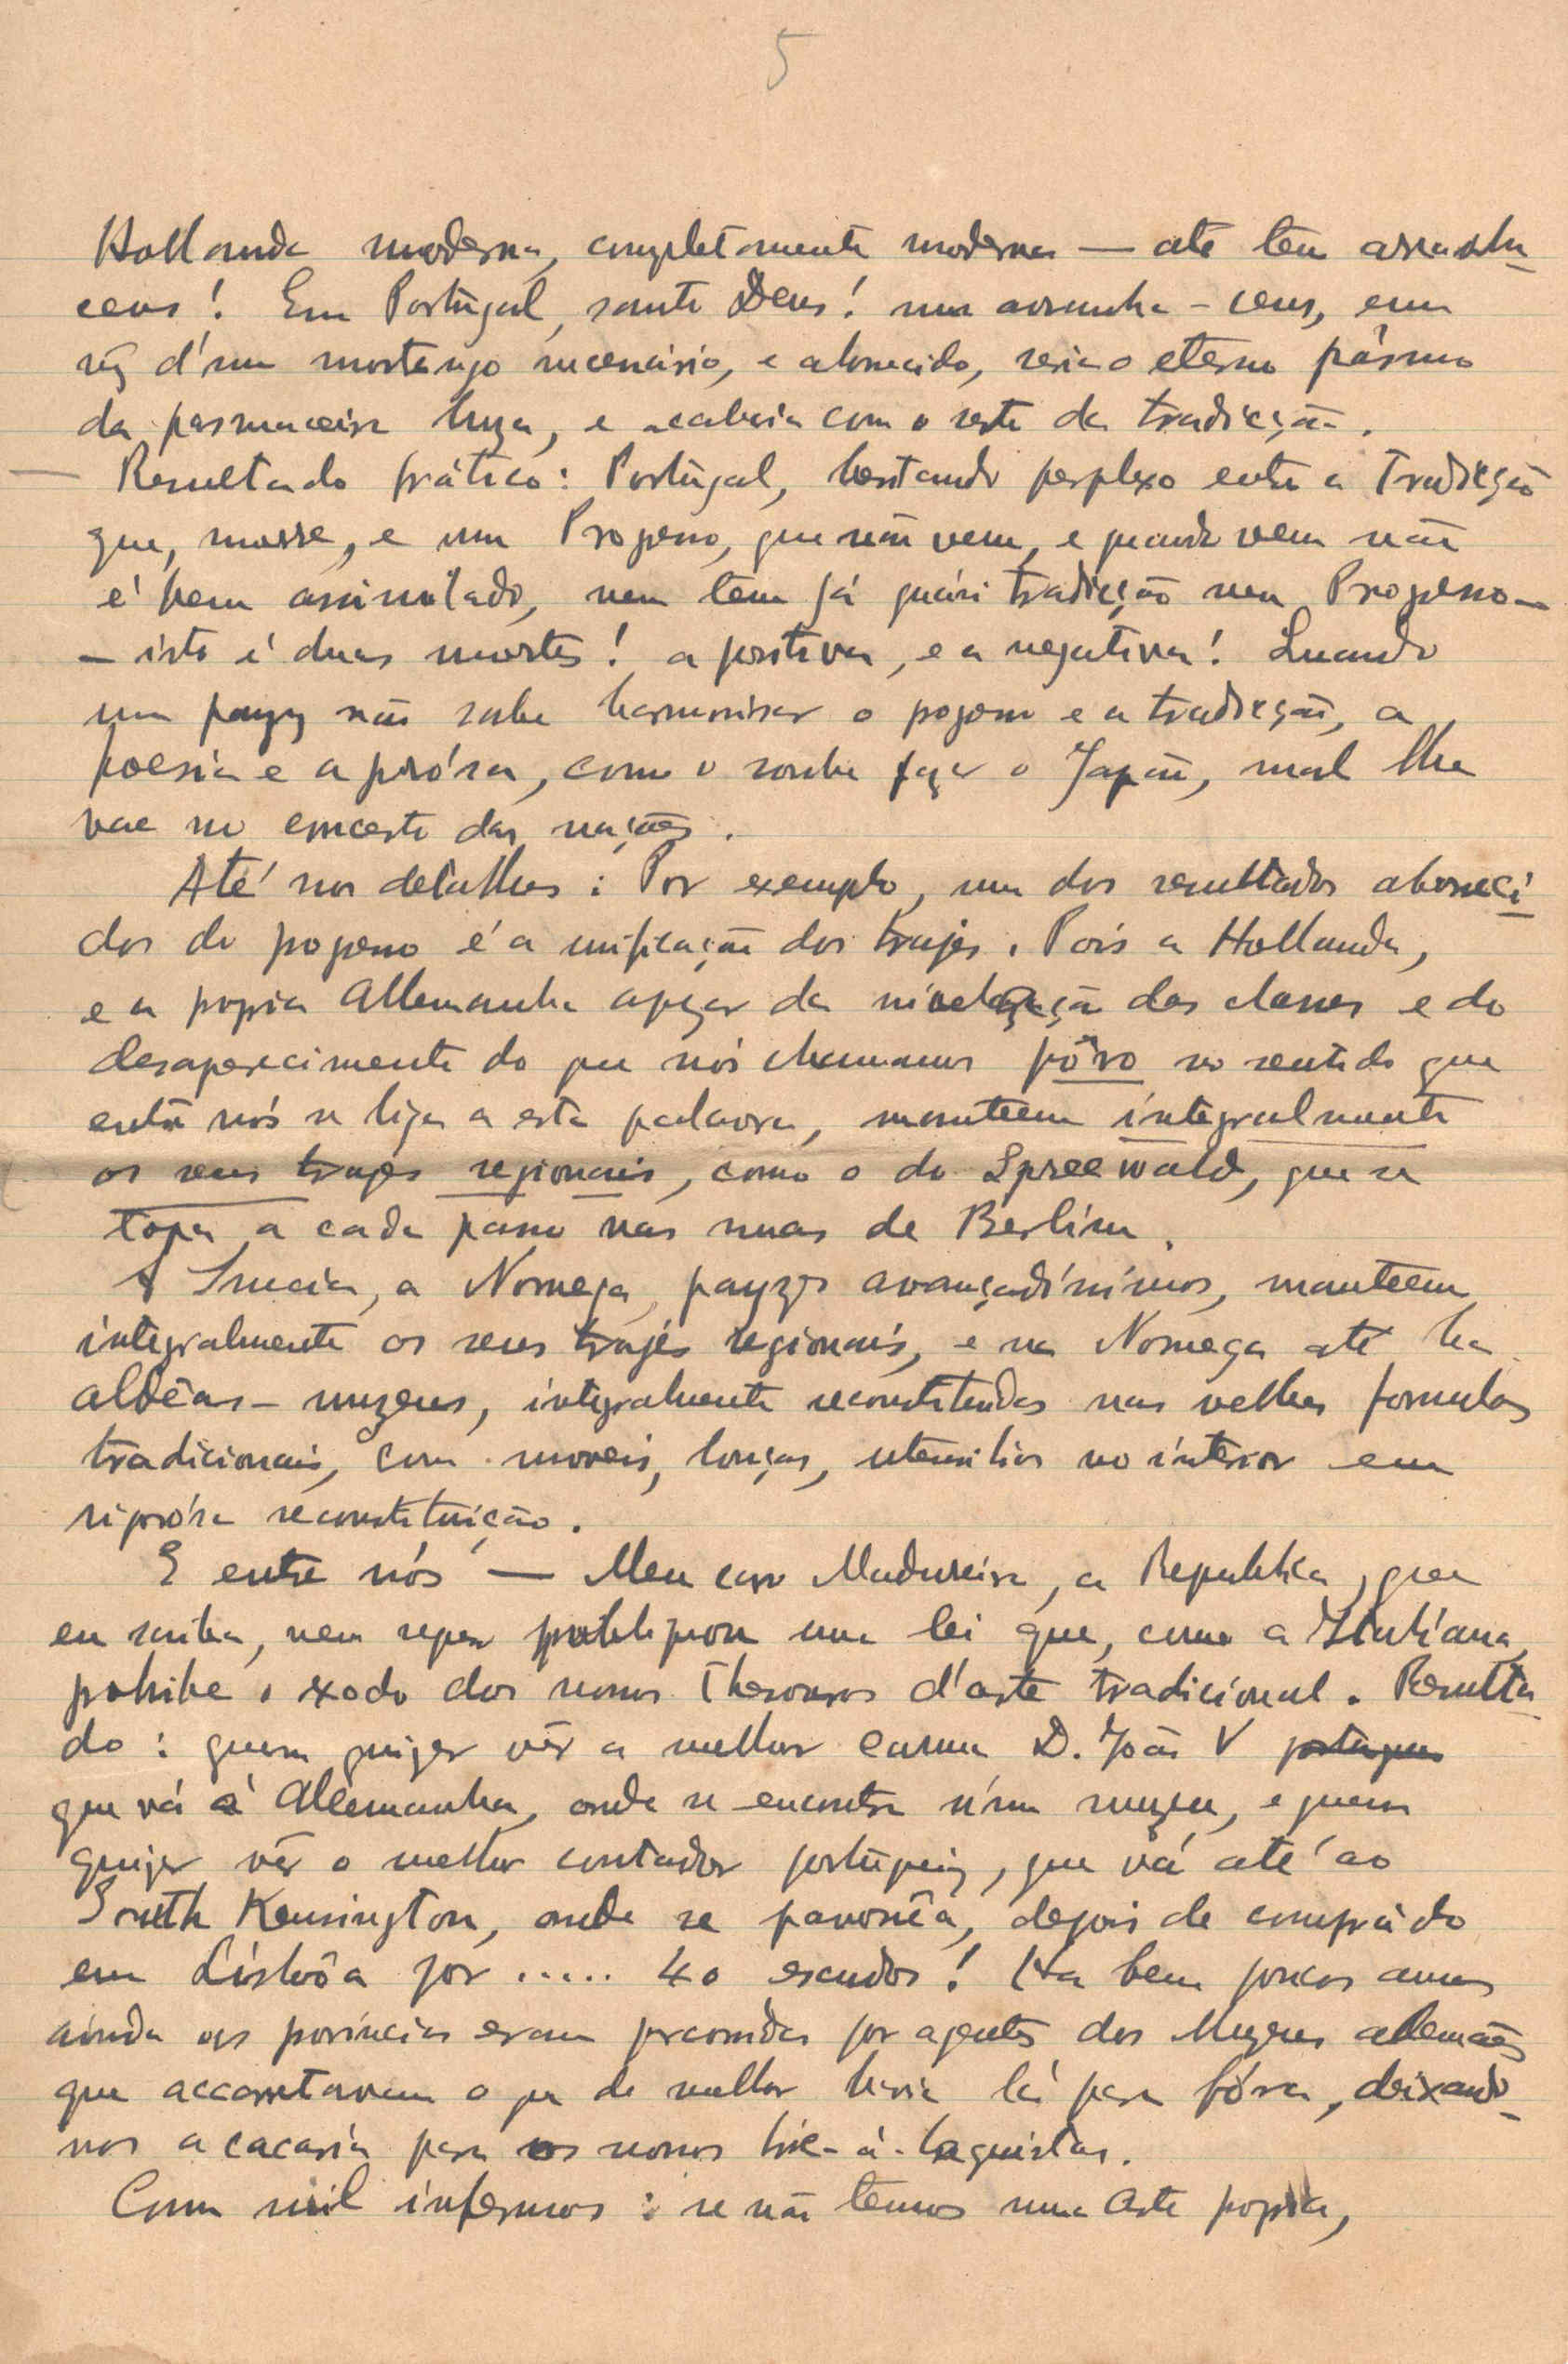 5
Hollanda moderna, completamente moderna — até tem arranha-
ceus! Em Portugal, santo Deus! um arranha-ceus, em
vêz d'um mostengo necessário, e aborrecido, seria o eterno pásmo
da pasmaceira luza, e acabaria com o resto da tradicção.
— Resultado prático: Portugal, hesitando perplexo entre a Tradicção
que, morre, e um Progresso, que não vem, e quando vem não
é bem assimilado, nem tem já quási tradicção nem Progresso —
— isto é duas mortes! a positiva, e a negativa! Quando
um payz não sabe harmonisar o progresso e a tradicção, a
poesia e a prósa, como o soube fazer o Japão, mal lhe
vae no concerto das nações.
Até nos detalhes: Por exemplo, um dos resultados aborreci-
dos do progresso é a unificação dos trajes. Pois a Hollanda,
e a propria Allemanha apezar da nivelação das classes e do
desaparecimento do que nós chamamos pôvo no sentido que
entre nós se liga a esta palavra, manteem integralmente
os seus trajes regionais, como o do Spreewald, que se
topa a cada passo nas ruas de Berlim.
A Suecia, a Noruega, payzes avançadíssimos, manteem
integralmente os seus trajes regionais, e na Noruega até ha
aldêas-muzeus, integralmente reconstituidas nas velhas formulas
tradicionais, com moveis, louças, utensilios no interior em
rigorósa reconstituição.
E entre nós — Meu caro Madureira, a Republica, que
eu saiba, nem sequer promulgou uma lei que, como a Italiana,
prohibe o exodo dos nossos Thesouros d'arte tradicional. Resulta-
do: quem quizer vêr a melhor cama D. João V
que vá á Allemanha, onde se encontra n'um muzeu, e quem
quizer vêr o melhor contador portuguez, que vá até ao
South Kensington, onde se pavonêa, depois de comprádo
em Lisbôa por ..... 40 escudos! Ha bem poucos annos
ainda as provincias eram percorridas por agentes dos Muzeus allemães
que accarretavam o que de melhor havia lá para fóra, deixando-
nos a cacaria para os nossos bric-á-braquistas.
Com mil infernos: se não temos uma Arte propria,